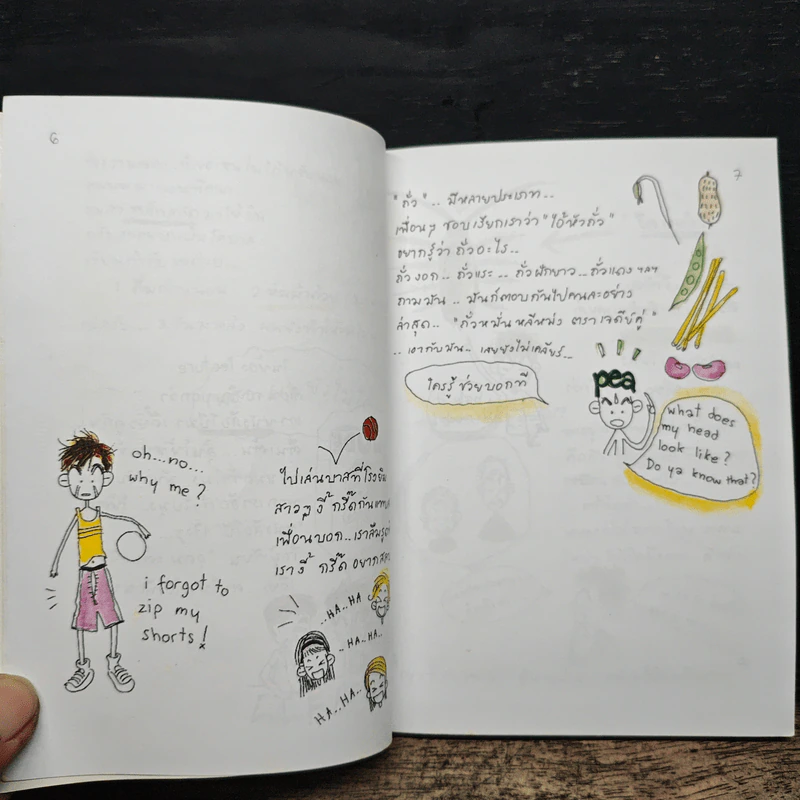 6
oh...no...
why me?
i forgot to
zip my
shorts!
ไปเล่นบาสที่โรงยิม
สาวๆ งี้ กรี๊ดกัน
เพื่อนบอก.. เราลืมรูด
เรางี้ กรี๊ด อยาก
..HA..HA
..HA..HA..
HA..HA..
7
"ถั่ว".. มีหลายประเภท..
เพื่อนๆ ชอบเรียกเราว่า "ไอ้หัวถั่ว"
อยากรู้ว่า ถั่วอะไร..
ถั่วงอก.. ถั่วแระ.. ถั่วฝักยาว.. ถั่วแดง ฯลฯ
ถามมัน.. มันก็ตอบกันไปคนละอย่าง
ล่าสุด.. "ถั่วหมั่นหลีหม่ง ตราเจดีย์คู่"
.. เอากับมัน.. เลยยังไม่เคลียร์..
ใครรู้ ช่วยบอกที
pea
what does
my head
look like?
Do ya know that?